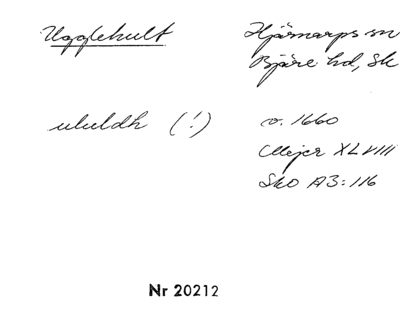 Ugglehult
Hjärnarps sn
Bjäre hd, Sk
ululdh (!)
v. 1660
Mejer XLVIII
Sko A3:116
Nr 20212